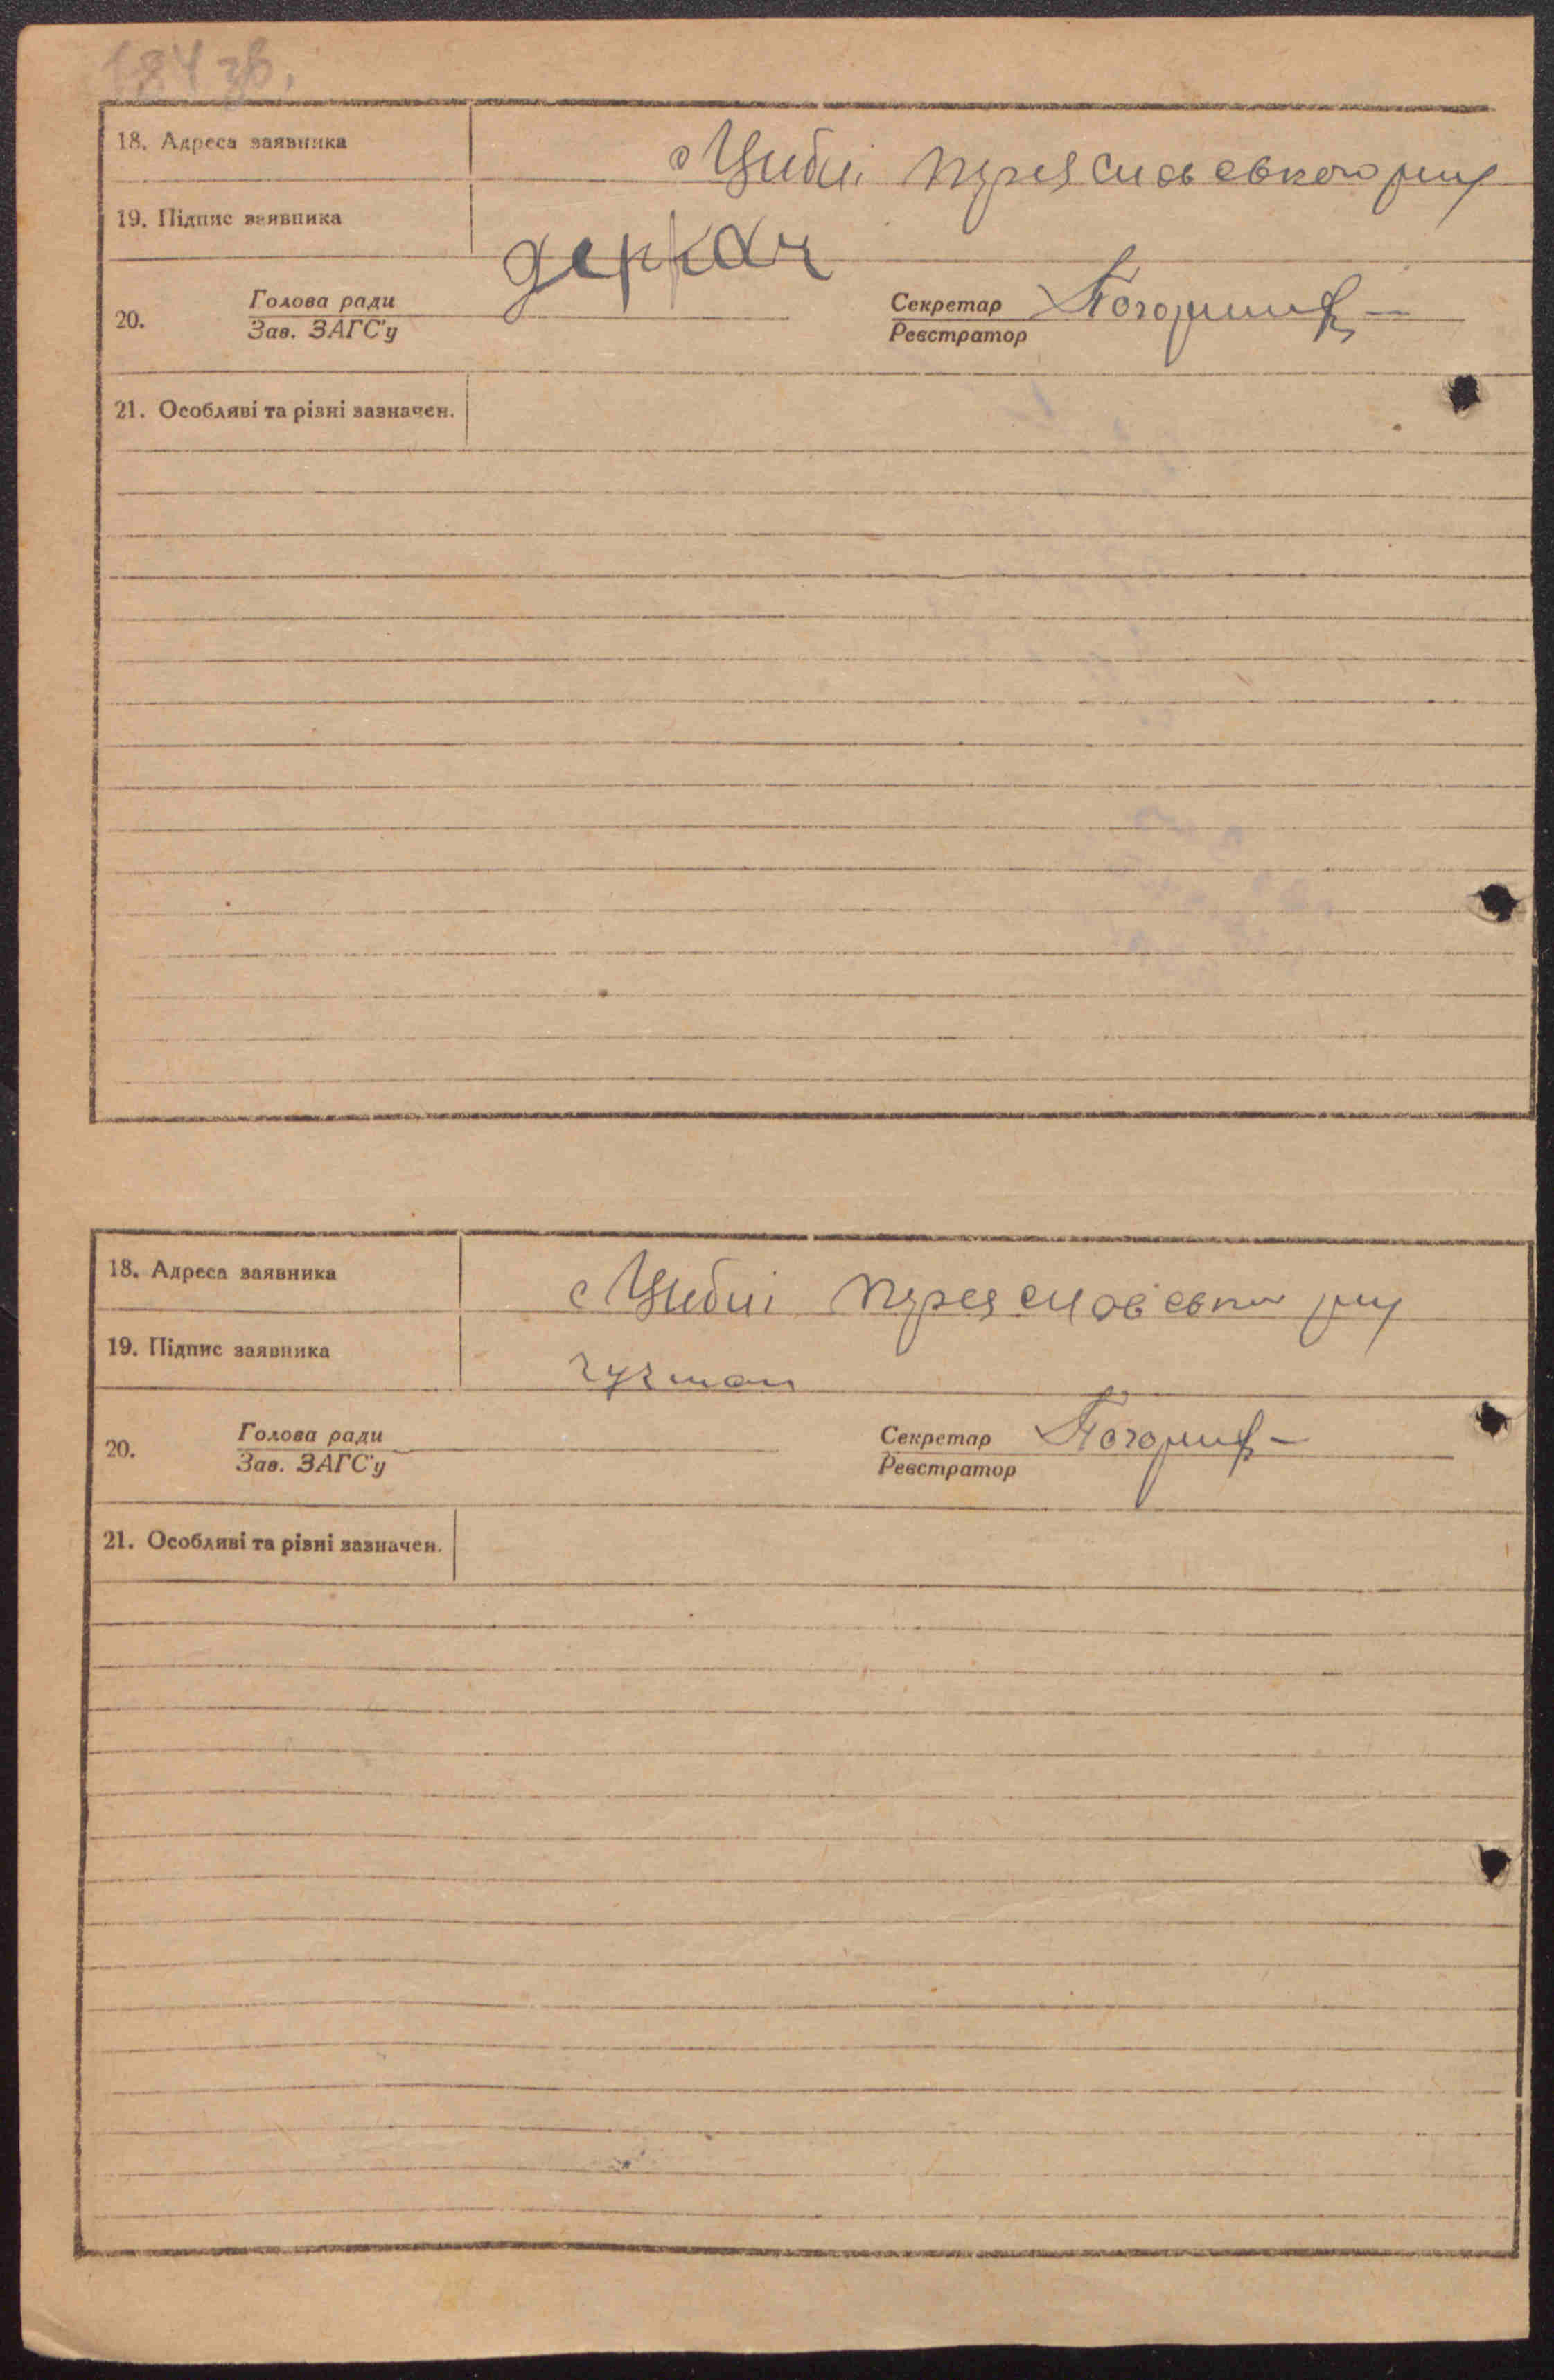 184 зв.
18. Адреса заявника с Циблі Переяславського р-ну
19. Підпис заявника деркач
20. Голова ради Секретар
Зав. ЗАГС'у Реєстратор
21. Особливі та різні зазначен.
18. Адреса заявника с Циблі Переяславськ р-ну
19. Підпис заявника
20. Голова ради Секретар
Зав. ЗАГС'у Реєстратор
21. Особливі та різні зазначен.